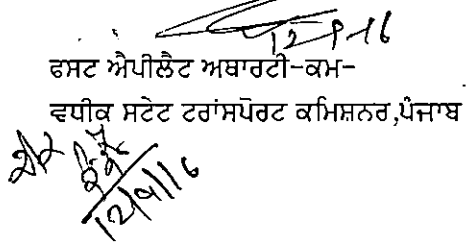 12-9-16
ਫਸਟ ਐਪੀਲੈਟ ਅਥਾਰਟੀ-ਕਮ-
ਵਧੀਕ ਸਟੇਟ ਟਰਾਂਸਪੋਰਟ ਕਮਿਸ਼ਨਰ,ਪੰਜਾਬ
12/9/16